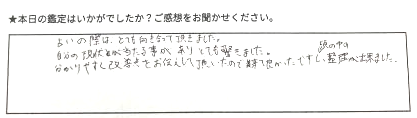 ★本日の鑑定はいかがでしたか？ご感想をお聞かせください。
占いの際は、とても向き合って頂きました。
自分の現状とが当たる事が、あり とても驚きました。
分かりやすく改善点をお伝えして頂いたので 来て良かったですし、頭の中の整理が出来ました。